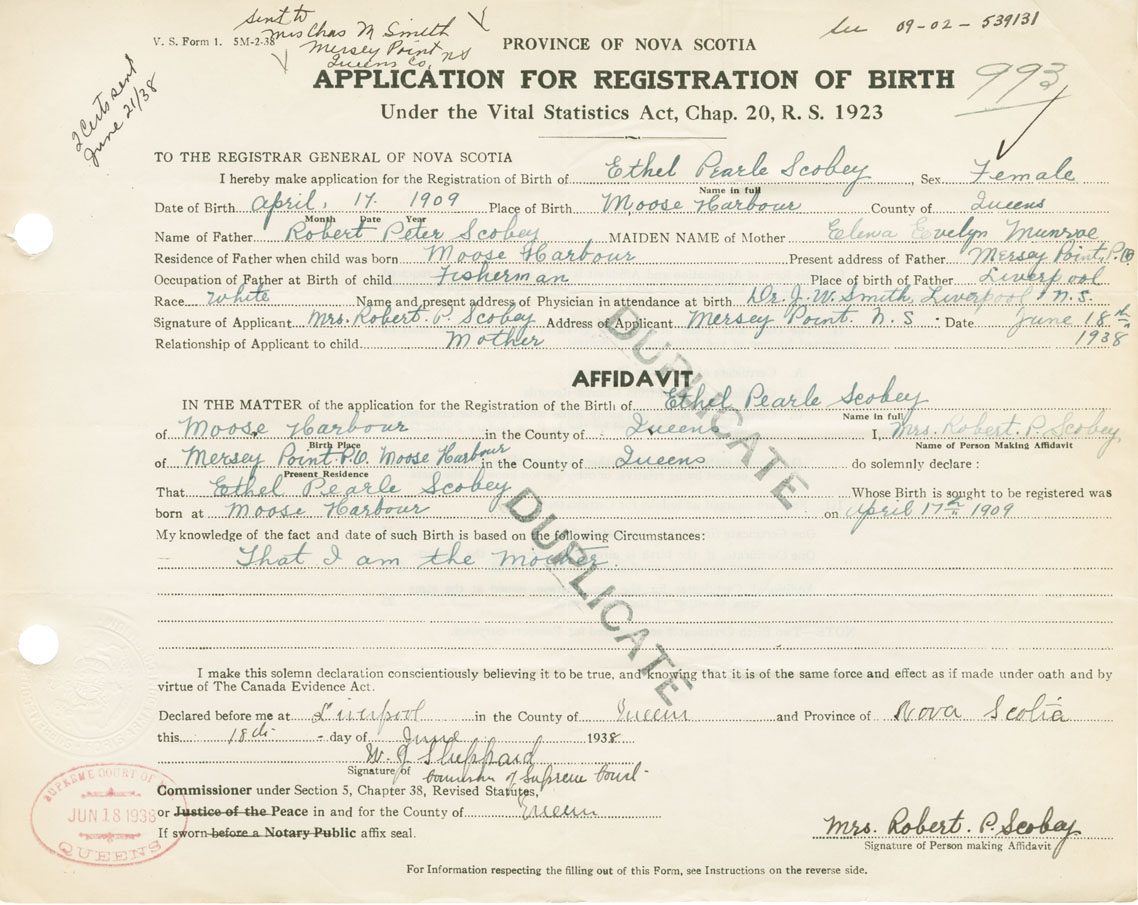 Sent to
Mrs Chas M Smith
Mersey Point
Queens Co, NS
V. S. Form 1. 5M-2-38
See 09-02-539131
2 Certs sent
June 21/38
PROVINCE OF NOVA SCOTIA
APPLICATION FOR REGISTRATION OF BIRTH
993
Under the Vital Statistics Act, Chap. 20, R. S. 1923
TO THE REGISTRAR GENERAL OF NOVA SCOTIA
I hereby make application for the Registration of Birth of Ethel Pearle Scobey, Sex Female
Name in full
Date of Birth April, 17. 1909 Place of Birth Moose Harbour County of Queens
Month Date Year
Name of Father Robert Peter Scobey MAIDEN NAME of Mother Elena Evelyn Munroe
Residence of Father when child was born Moose Harbour Present address of Father Mersey Point, P.O.
Occupation of Father at Birth of child Fisherman Place of birth of Father Liverpool
Race White Name and present address of Physician in attendance at birth Dr. J. W. Smith, Liverpool N.S.
Signature of Applicant Mrs. Robert. P. Scobey Address of Applicant Mersey Point. N. S. Date June 18th
1938
Relationship of Applicant to child Mother
DUPLICATE
AFFIDAVIT
IN THE MATTER of the application for the Registration of the Birth of Ethel Pearle Scobey
Name in full
of Moose Harbour in the County of Queens I, Mrs. Robert. P. Scobey,
Birth Place
Name of Person Making Affidavit
of Mersey Point P.O. Moose Harbour in the County of Queens do solemnly declare :
Present Residence
That Ethel Pearle Scobey Whose Birth is sought to be registered was
born at Moose Harbour on April 17th 1909
DUPLICATE
My knowledge of the fact and date of such Birth is based on the following Circumstances:
That I am the Mother.
I make this solemn declaration conscientiously believing it to be true, and knowing that it is of the same force and effect as if made under oath and by
virtue of The Canada Evidence Act.
Declared before me at Liverpool in the County of Queens and Province of Nova Scotia
this 18th day of June 1938
W. J. Sheppard
Signature of
Commissioner of Supreme Court
Commissioner under Section 5, Chapter 38, Revised Statutes,
or Justice of the Peace in and for the County of Queens
If sworn before a Notary Public affix seal.
SUPREME COURT OF
JUN 18 1938
QUEENS
Mrs. Robert. P. Scobey
Signature of Person making Affidavit
For Information respecting the filling out of this Form, see Instructions on the reverse side.